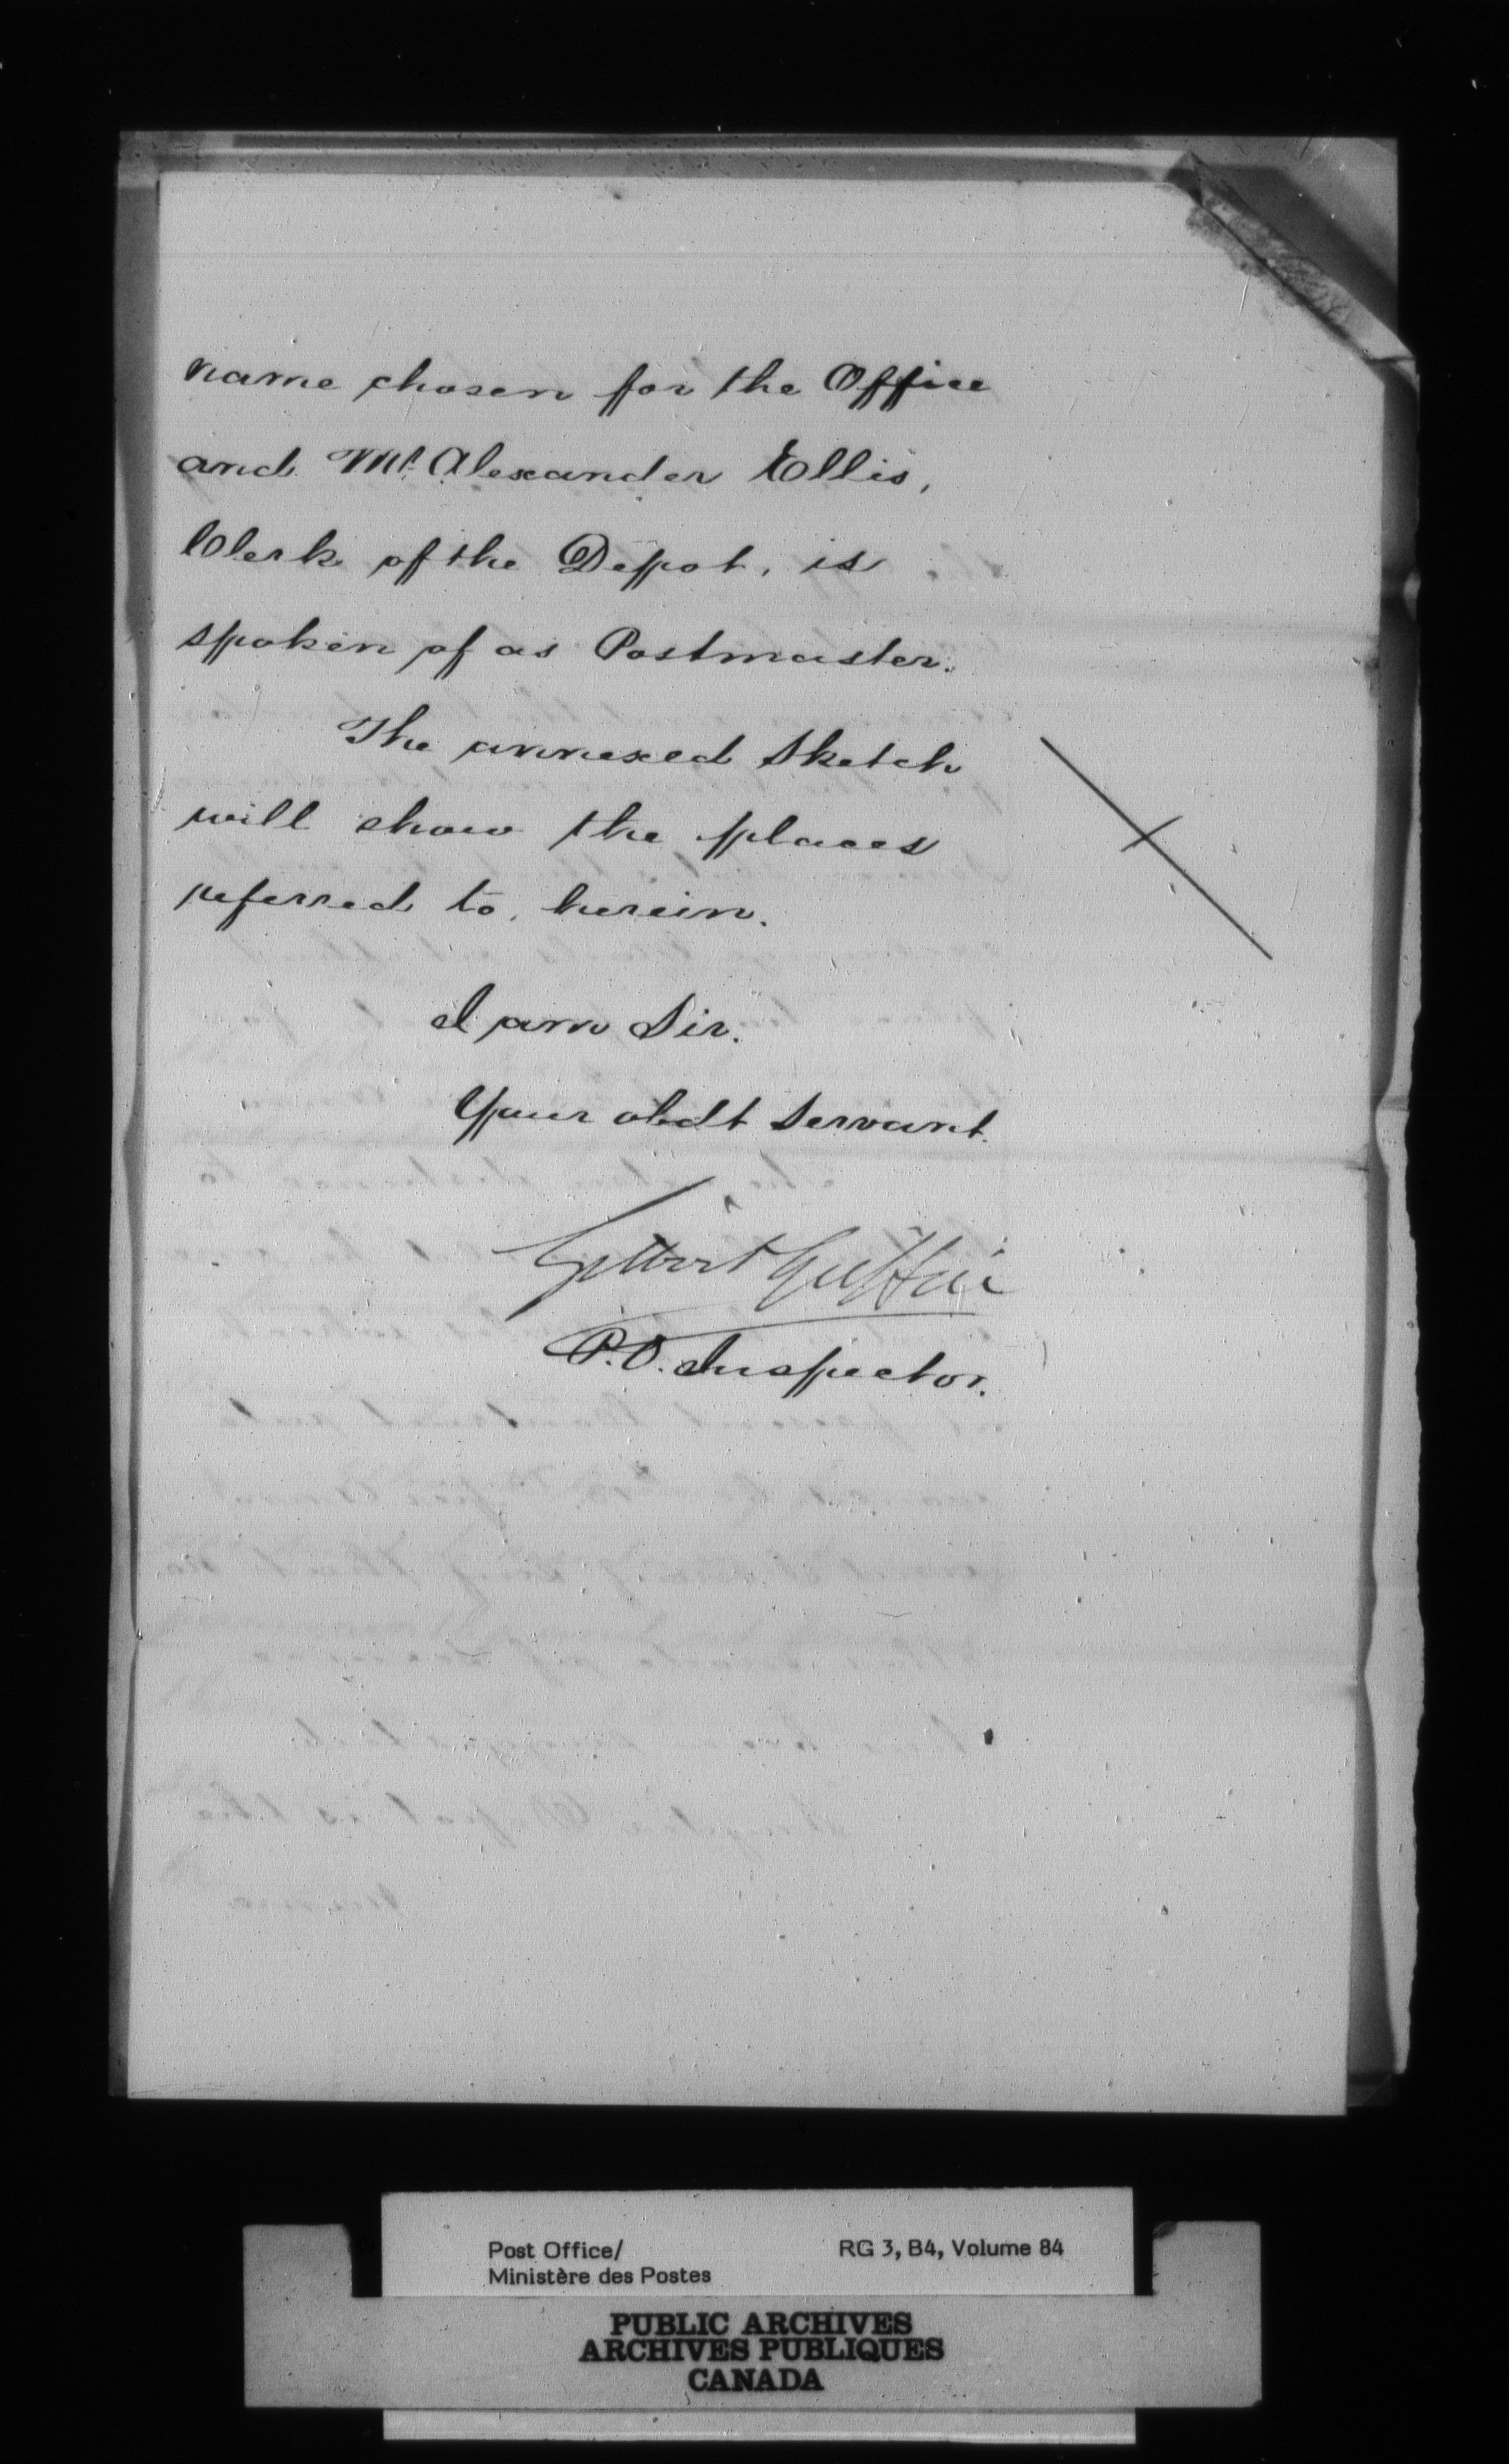 name chosen for the Office
and Mr. Alexander Ellis,
Clerk of the Depot, is
spoken of as Postmaster.
The annexed Sketch
will show the places
referred to, herein.
I am Sir.
Your obdt Servant.
Gilbert Griffin
P.O. Inspector.
Post Office/ RG 3, B4, Volume 84
Ministère des Postes
PUBLIC ARCHIVES
ARCHIVES PUBLIQUES
CANADA